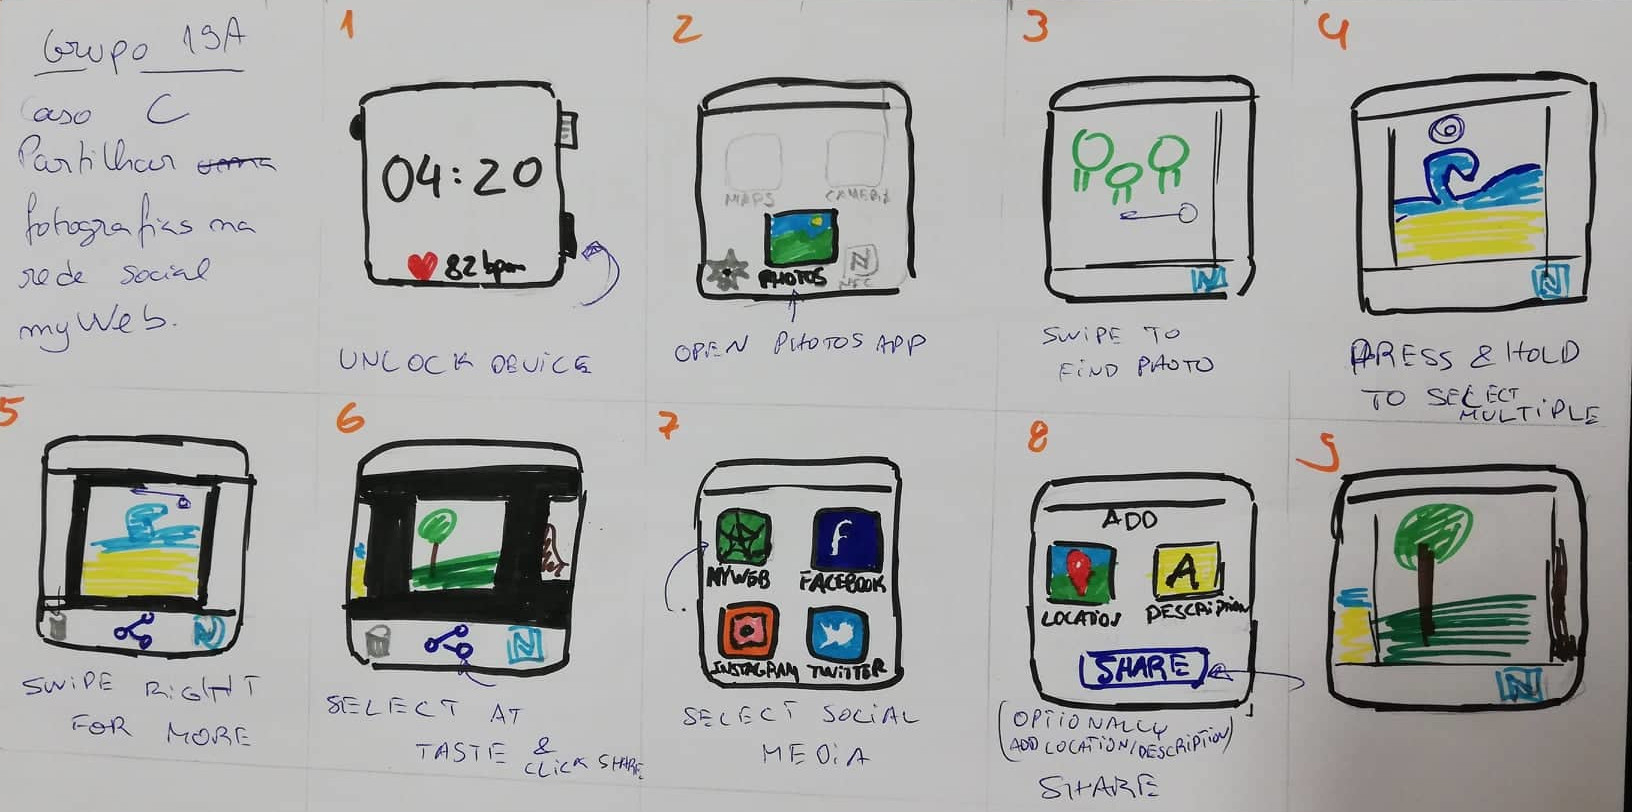 Grupo 19A
Caso C
Partilhar
fotografias na
rede social
myWeb.
1
04:20
82 bpm
UNLOCK DEVICE
2
MAPS CAMERA
PHOTOS NFC
OPEN PHOTOS APP
3
N
SWIPE TO
FIND PHOTO
4
N
PRESS & HOLD
TO SELECT
MULTIPLE
5
N
SWIPE RIGHT
FOR MORE
6
N
SELECT AT
TASTE &
CLICK SHARE
7
MYWEB FACEBOOK
INSTAGRAM TWITTER
SELECT SOCIAL
MEDIA
8
ADD
A
LOCATION DESCRIPTION
SHARE
(OPTIONALLY
ADD LOCATION/DESCRIPTION)
SHARE
9
N